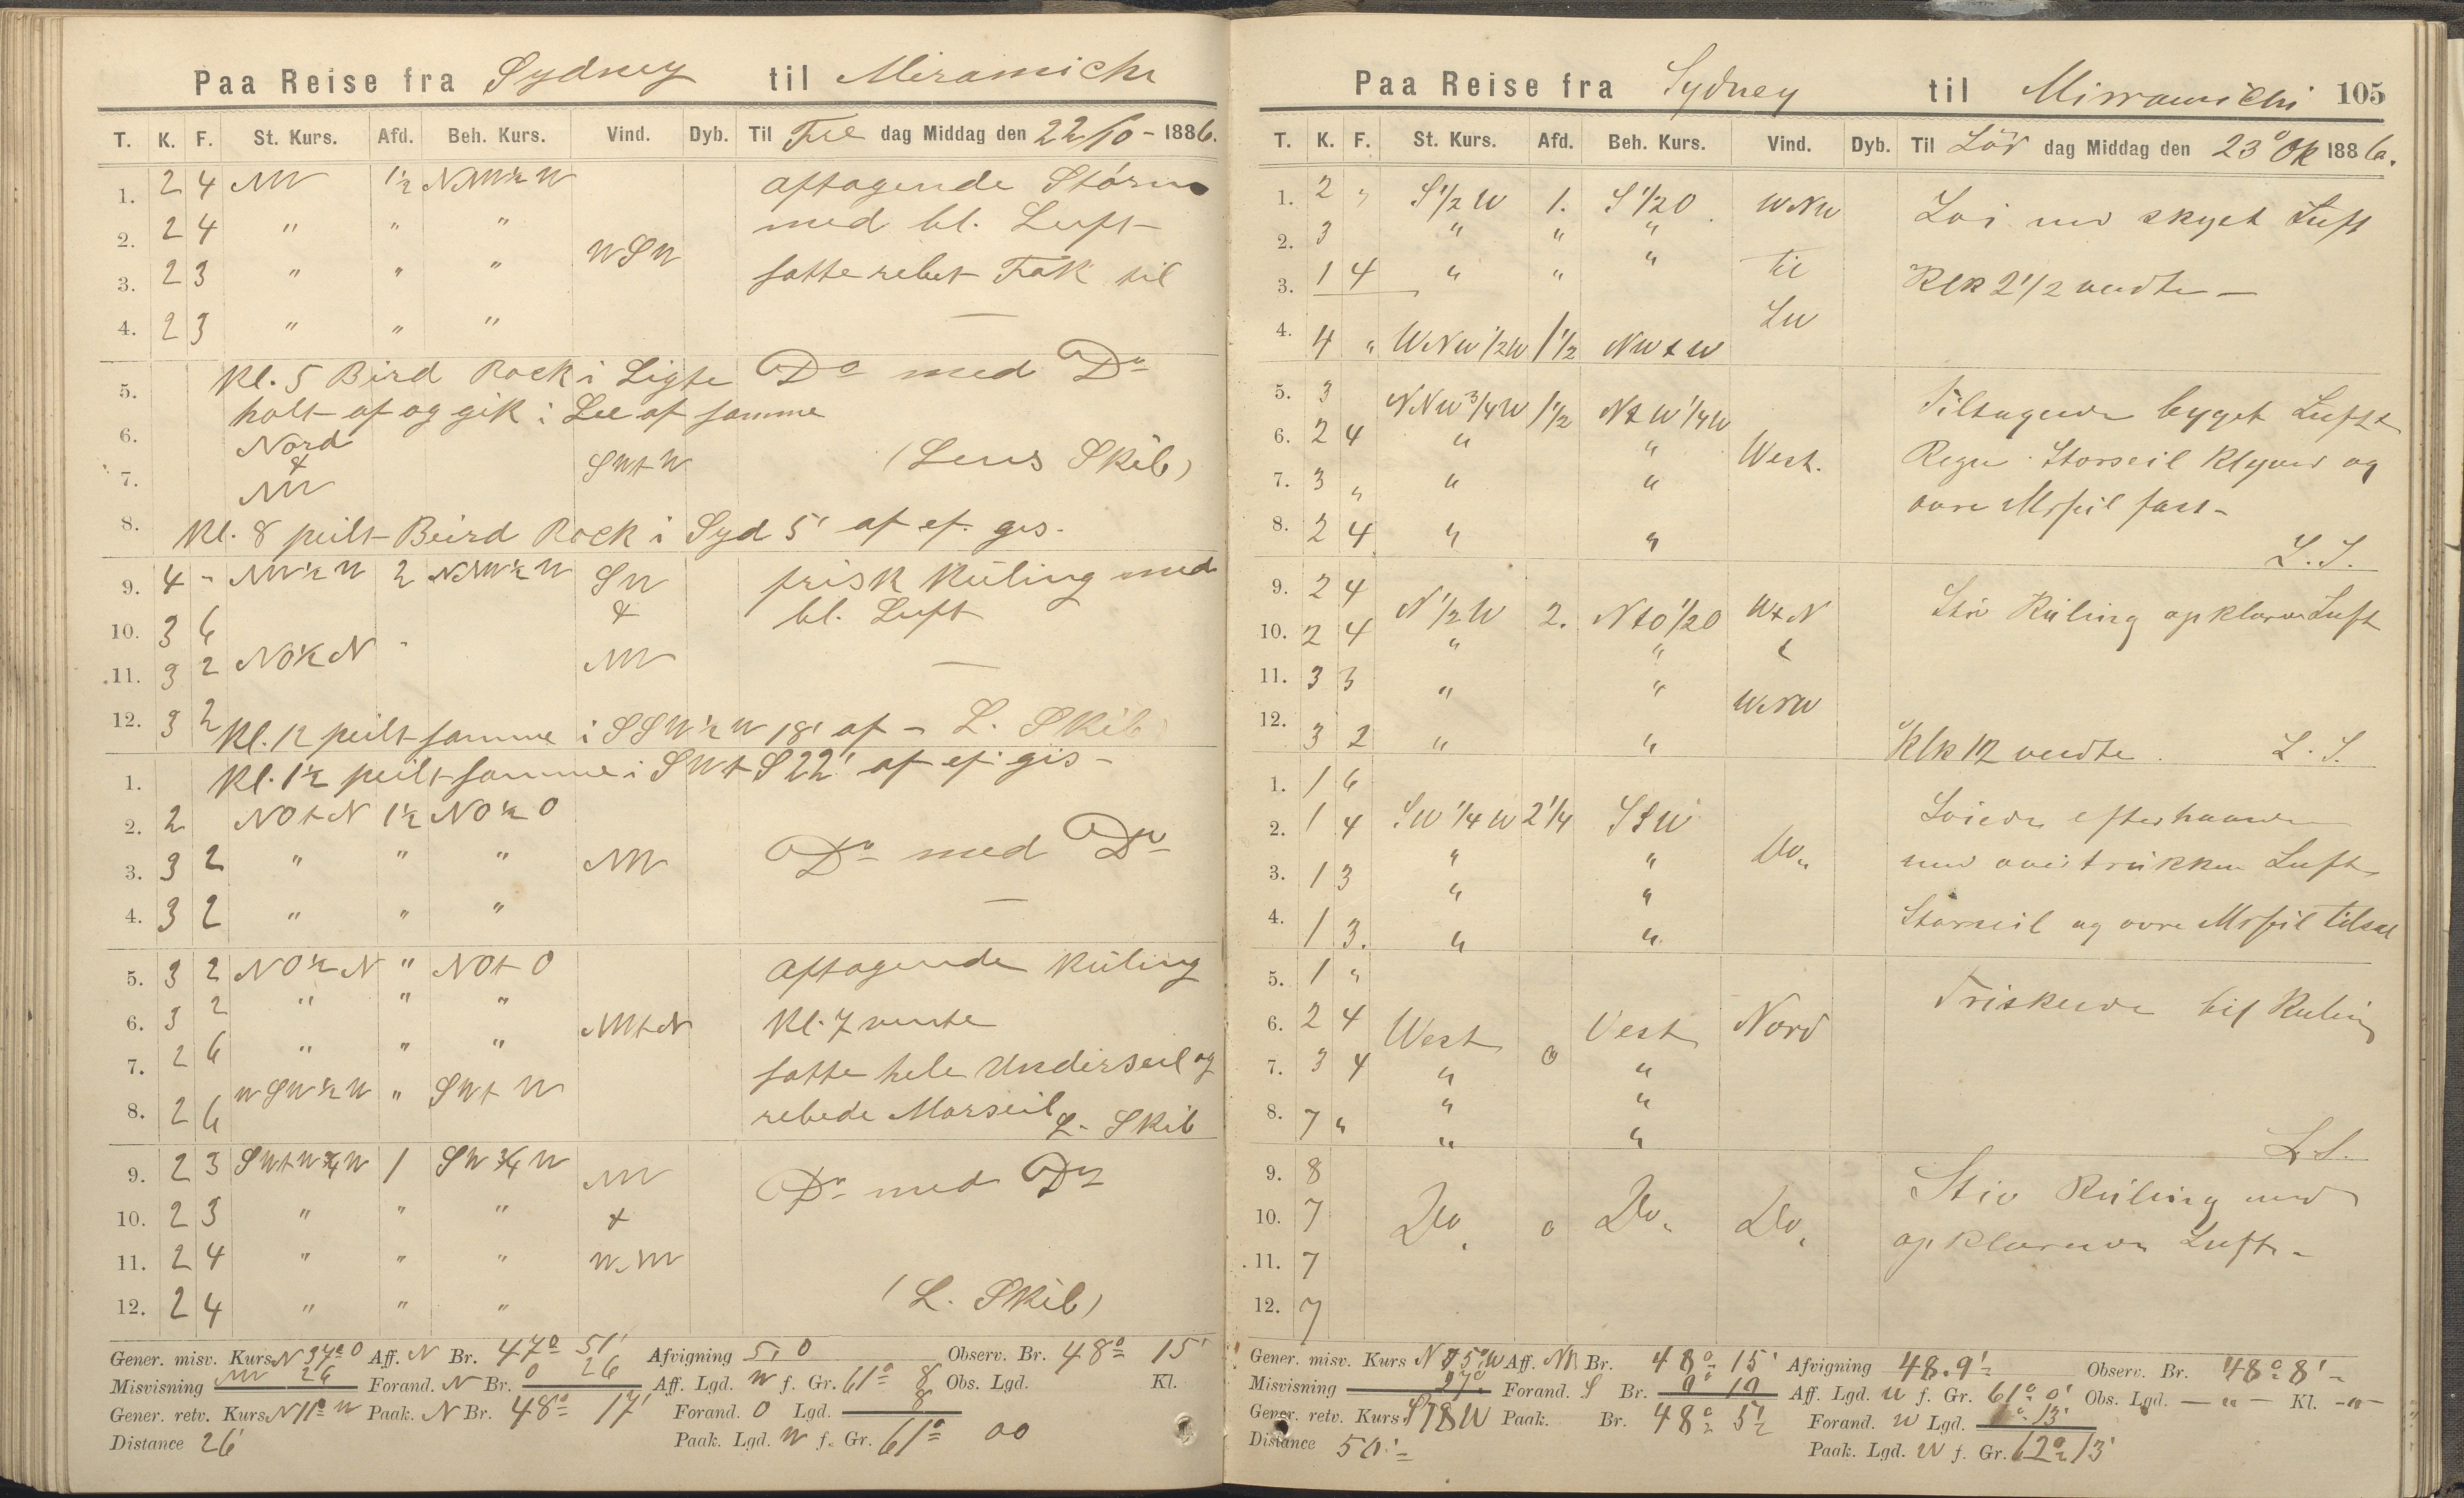 Paa Reise fra Sydney til Miramichi
T. K. F. St. Kurs. Afd. Beh. Kurs. Vind. Dyb. Til Fre dag Middag den 22/10 - 1886.
1. 2 4 NW 1/2 NNW 1/2 W aftagende Storm
2. 2 4 " " " med bl. Luft -
3. 2 3 " " " WSW satte rebet Fok til
4. 2 3 " " " —
5. Kl. 5 Bird Rock i Ligte Do med Do
holt af og gik i Lee af samme
6. Nord
7. & NW SWtW (Lens Skib)
8. Kl. 8 peilt Beird Rock i Syd 5' af ef. gis.
9. 4 - NW 1/2 W 2 NNW 1/2 W SW frisk Kuling med
10. 3 6 & bl. Luft
11. 3 2 NO 1/2 N " NW —
12. 3 2 Kl. 12 peilt samme i SSW 1/2 W 18' af - L. Skib
1. Kl. 1 1/2 peilt samme i SWtS 22' af ef gis -
2. 2 NOtN 1 1/2 NO 1/2 O
3. 3 2 " " " NW Do med Do
4. 3 2 " " " —
5. 3 2 NO 1/2 N " NOtO aftagende Kuling
6. 3 2 " " " NWtN Kl. 7 vente
7. 2 6 " " " satte hele Underseil og
8. 2 6 WSW 1/2 W " SWtW rebede Marseil L. Skib
9. 2 3 SWtW 3/4 W 1 SW 3/4 W NW Do med Do
10. 2 3 " " " &
11. 2 4 " " " W.NW
12. 2 4 " " " (L. Skib)
Gener. misv. Kurs N 37° O Aff. N Br. 47° 51' Afvigning 5,0 Observ. Br. 48° 15'
Misvisning NW 26 Forand. N Br. 0 26 Aff. Lgd. W f. Gr. 61° 8 Obs. Lgd. Kl.
Gener. retv. Kurs N 11° W Paak. N Br. 48° 17' Forand. O Lgd. 8
Distance 26' Paak. Lgd. W f. Gr. 61° 00
Paa Reise fra Sydney til Mirramichi 105
T. K. F. St. Kurs. Afd. Beh. Kurs. Vind. Dyb. Til Lör dag Middag den 23° Ok 1886.
1. 2 " S 1/2 W 1. S 1/2 O WNW Loi med skyet Luft
2. 3 " " "
3. 1 4 " " " til Klk 2 1/2 vendte —
4. 4 " WNW 1/2 W 1 1/2 NWtW
5. 3 NNW 3/4 W 1 1/2 NtW 1/4 W Tiltagende byget Luft
6. 2 4 " " West. Regn Storseil Klyver og
7. 3 " " " ovre Msseil fast -
8. 2 4 " " L.S.
9. 2 4 N 1/2 W 2. NtO 1/2 O WtN Stiv Kuling opklarende Luft
10. 2 4 " "
11. 3 3 " " WNW
12. 3 2 " " Klk 12 vendte. L.S.
1. 1 6
2. 1 4 SW 1/4 W 2 1/4 StW Loiede efterhaanden
3. 1 3 " " Do. med overtrukken Luft
4. 1 3. " " Storseil og ovre Msseil tilsat
5. 1 "
6. 2 4 West 0 Vest Nord Friskende bif Kuling
7. 3 4 " "
8. 7 " " " L.S.
9. 8 Stiv Kuling med
10. 7 Do. 0 Do. Do. opklarende Luft -
11. 7
12. 7
Gener. misv. Kurs N 75° W Aff. N Br. 48° 15' Afvigning 48.9' Observ. Br. 48° 8' -
Misvisning 27° Forand. S Br. 0° 10 Aff. Lgd. W f. Gr. 61° 0' Obs. Lgd. — " — Kl. - " -
Gener. retv. Kurs S 78 W Paak. Br. 48° 5' Forand. W Lgd. 1° 13'
Distance 50' Paak. Lgd. W f. Gr. 62° 13'